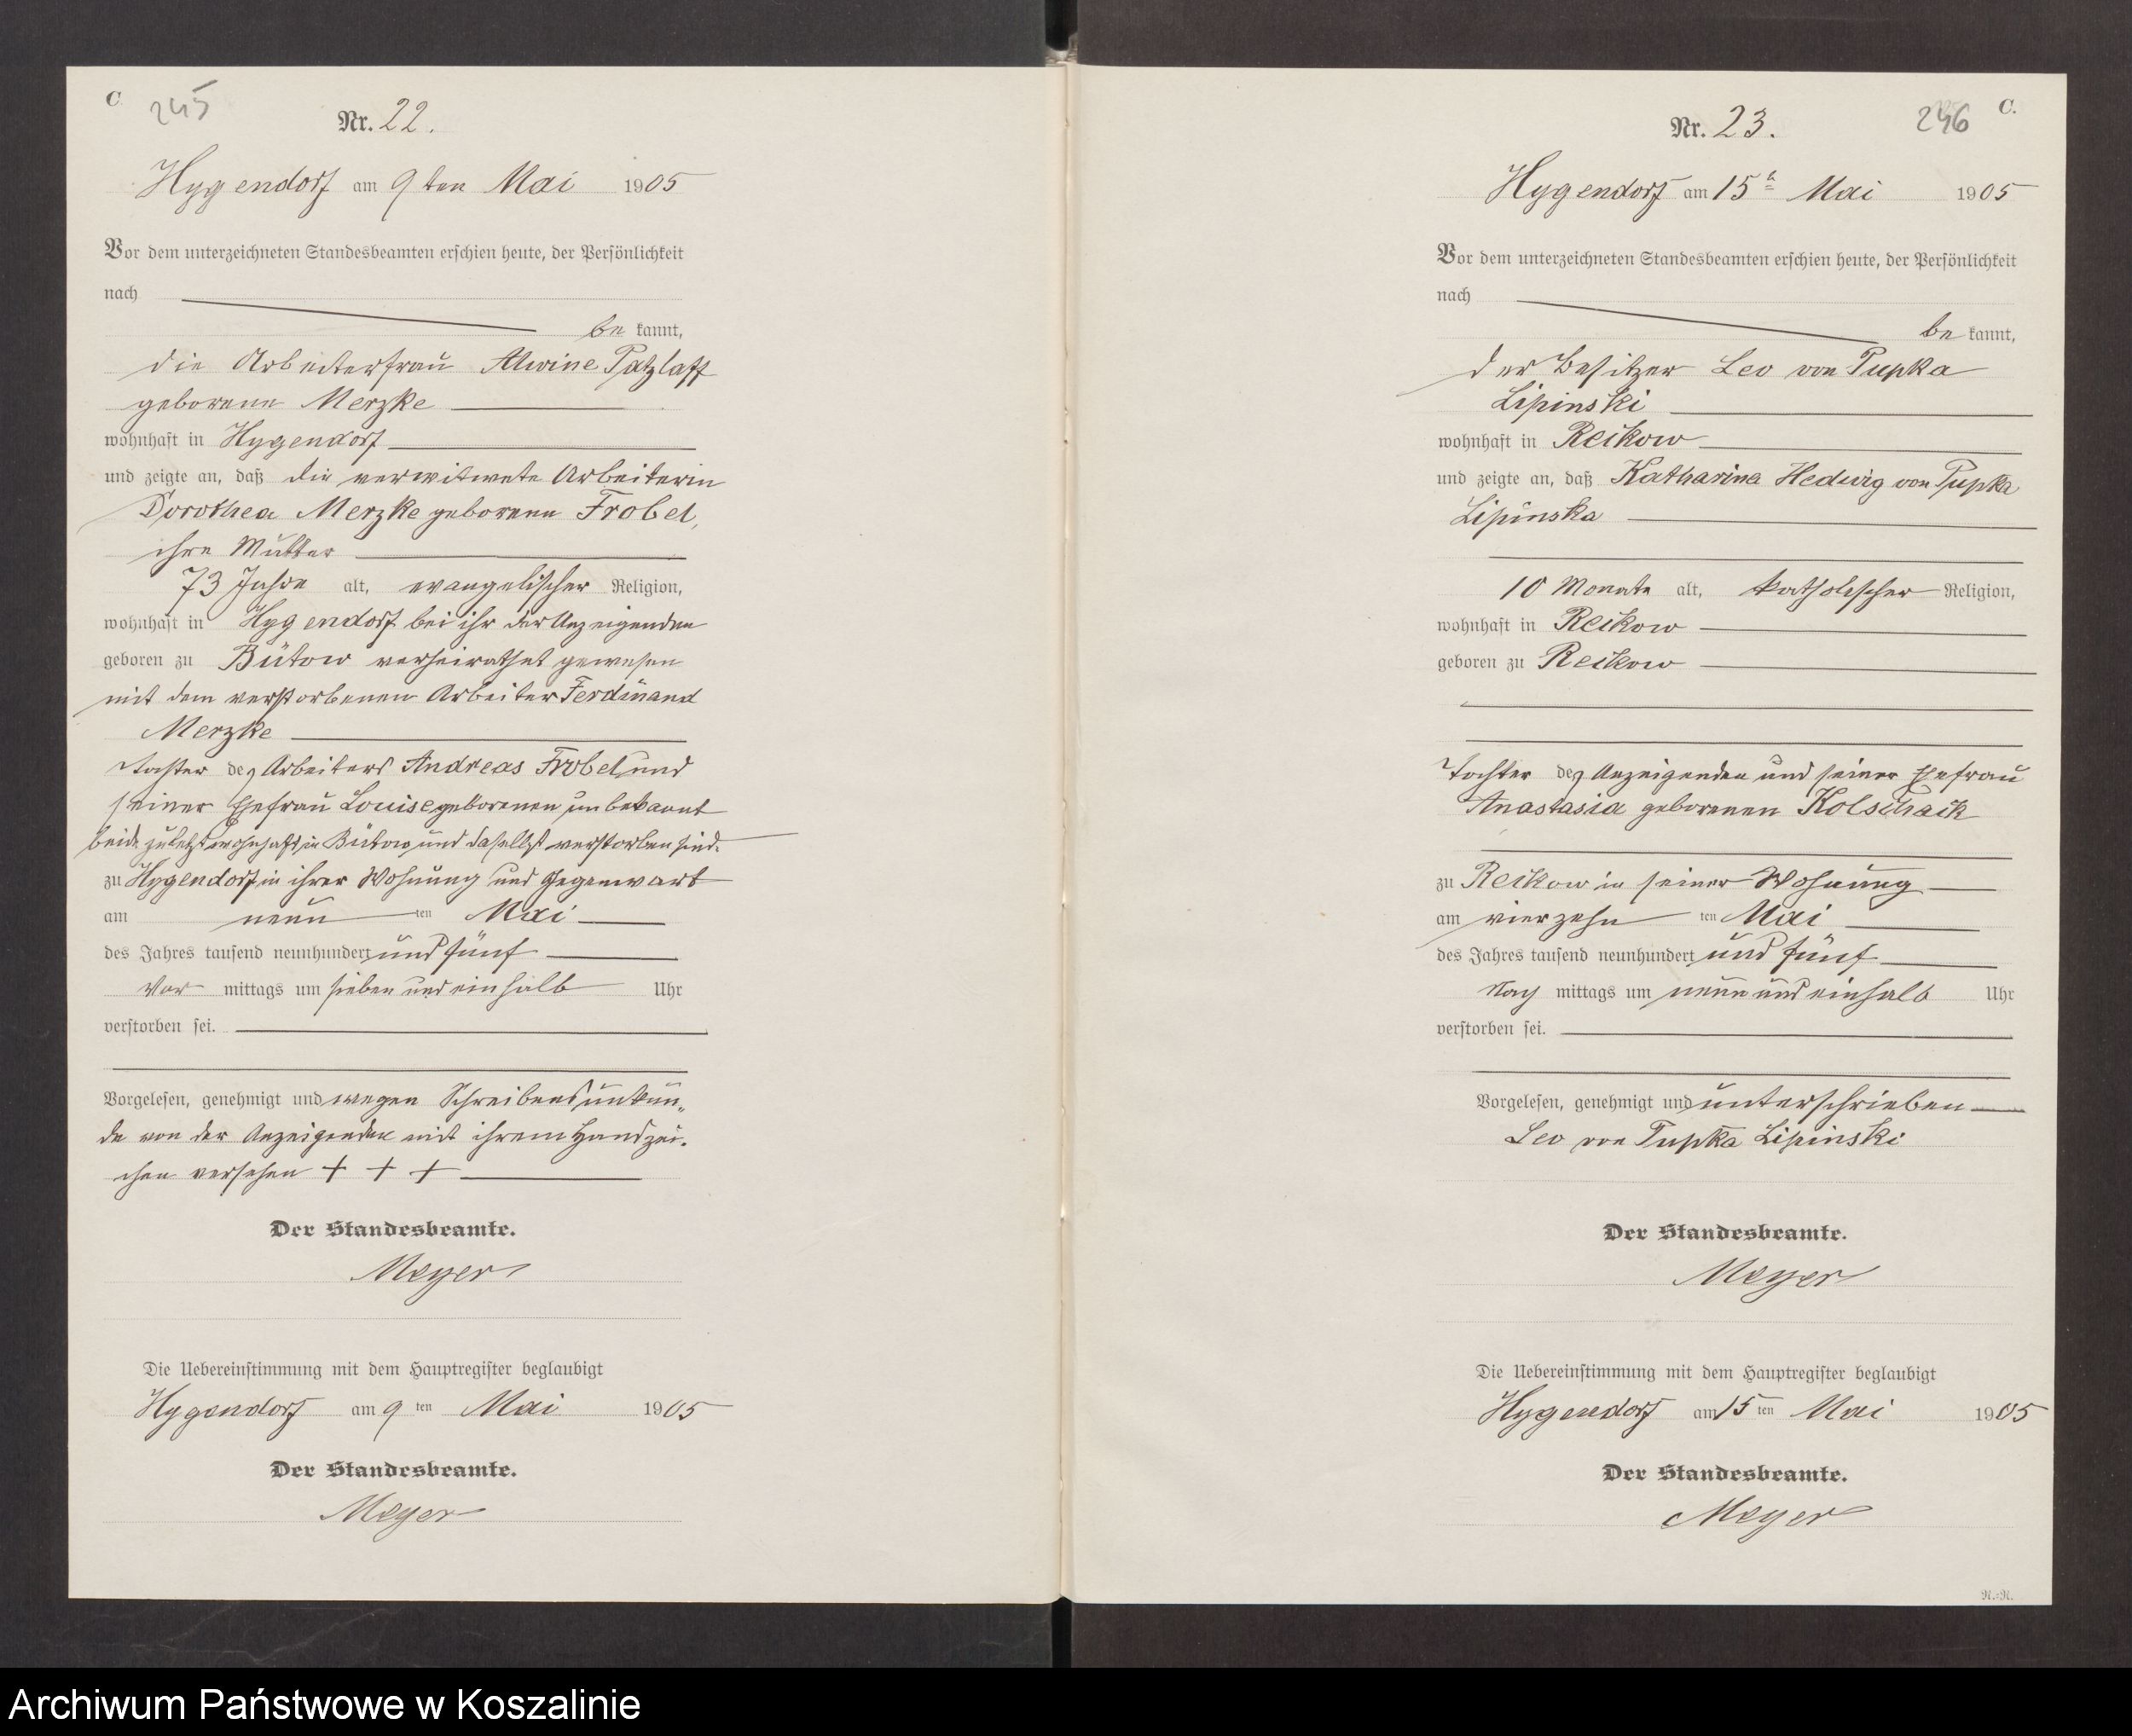 C
245
Nr. 22.
Hygendorf am 9ten Mai 1905
Vor dem unterzeichneten Standesbeamten erschien heute, der Persönlichkeit
nach
be kannt,
die Arbeiterfrau Alwine Patzlaff
geborene Merzke
wohnhaft in Hygendorf
und zeigte an, daß die verwitwete Arbeiterin
Dorothea Merzke geborene Frobel,
ihre Mutter
73 Jahre alt, evangelischer Religion,
wohnhaft in Hygendorf bei ihr der Anzeigenden
geboren zu Bütow verheirathet gewesen
mit dem verstorbenen Arbeiter Ferdinand
Merzke
Tochter des Arbeiters Andreas Frobel und
seiner Ehefrau Louise geborenen unbekannt
beide zuletzt wohnhaft in Bütow und daselbst verstorben sind.
zu Hygendorf in ihrer Wohnung und Gegenwart
am neun ten Mai
des Jahres tausend neunhundert und fünf
Vor mittags um sieben und ein halb Uhr
verstorben sei.
Vorgelesen, genehmigt und wegen Schreibensunkun„
de von der Anzeigenden mit ihrem Handzei.
chen versehen + + +
Der Standesbeamte.
Meyer
Die Uebereinstimmung mit dem Hauptregister beglaubigt
Hygendorf am 9 ten Mai 1905
Der Standesbeamte.
Meyer
246
C.
Nr. 23.
Hygendorf am 15t Mai 1905
Vor dem unterzeichneten Standesbeamten erschien heute, der Persönlichkeit
nach
be kannt,
der Besitzer Leo von Pupka
Lipinski
wohnhaft in Reckow
und zeigte an, daß Katharina Hedwig von Pupka
Lipinska
10 Monate alt, katholischer Religion,
wohnhaft in Reckow
geboren zu Reckow
Tochter des Anzeigenden und seiner Ehefrau
Anastasia geborenen Kolschack
zu Reckow in seiner Wohnung
am vierzehn ten Mai
des Jahres tausend neunhundert und fünf
Nach mittags um neun und einhalb Uhr
verstorben sei.
Vorgelesen, genehmigt und unterschrieben
Leo von Pupka Lipinski
Der Standesbeamte.
Meyer
Die Uebereinstimmung mit dem Hauptregister beglaubigt
Hygendorf am 15 ten Mai 1905
Der Standesbeamte.
Meyer
R.-R.
Archiwum Państwowe w Koszalinie